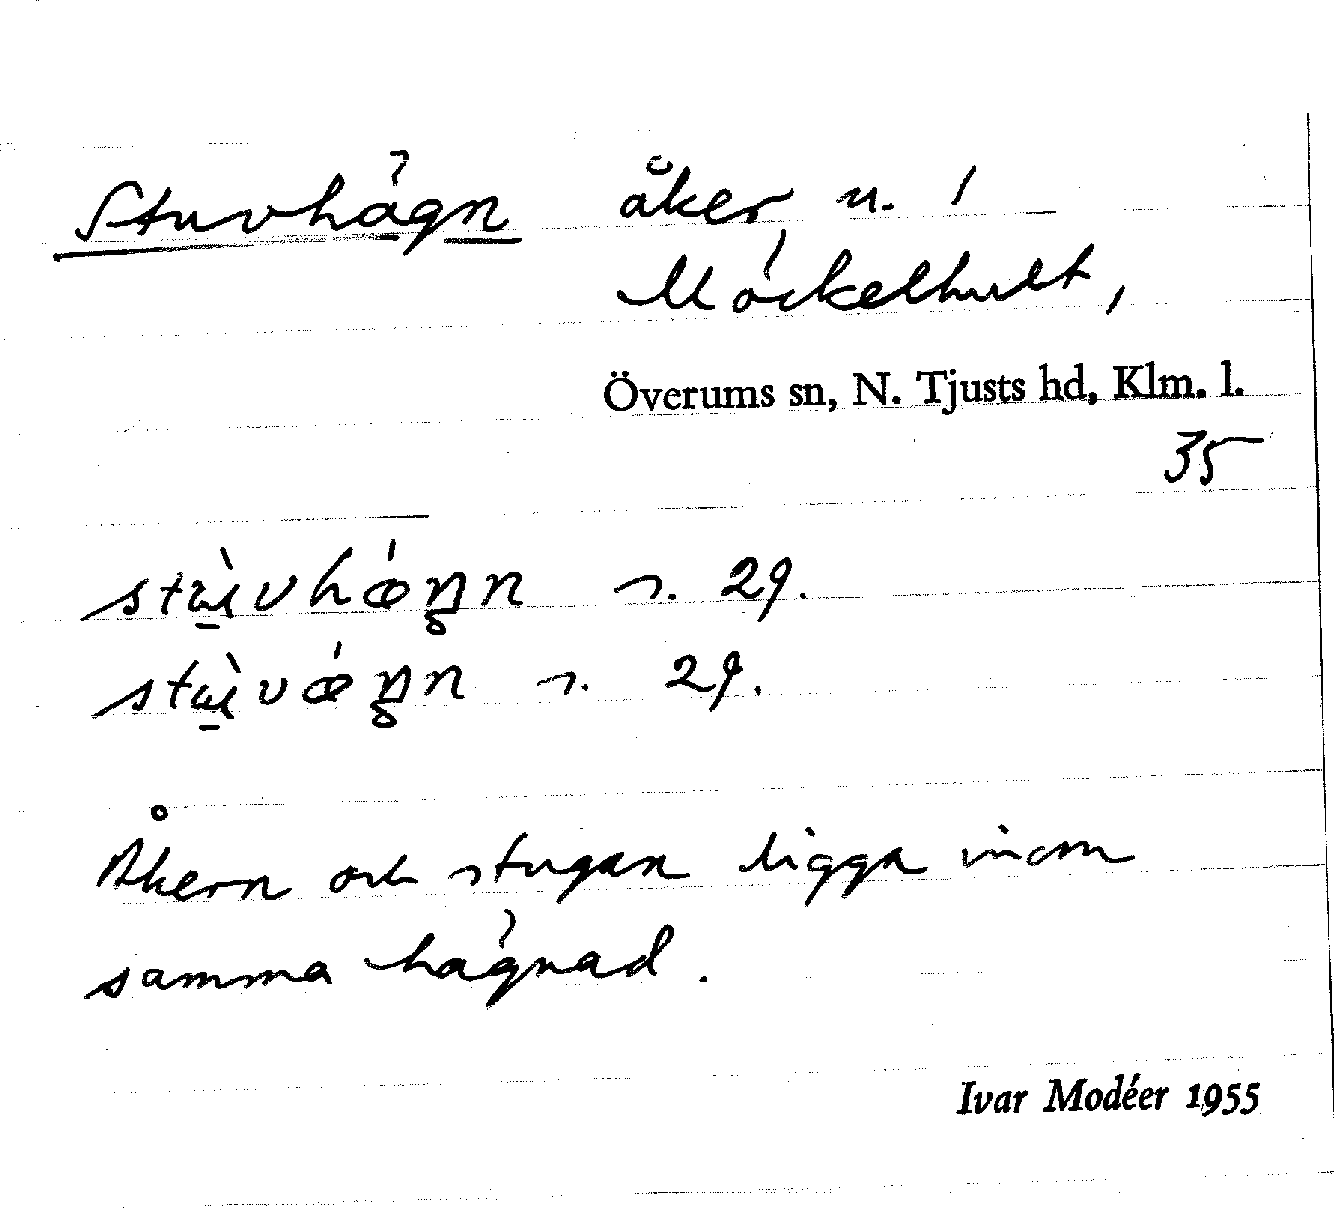 Stuvhägn åker, u. 1
Möckelhult,
Överums sn, N. Tjusts hd, Klm. l.
35
s. 29.
s. 29.
Åkern och stugan ligga inom
samma hägnad.
Ivar Modéer 1955